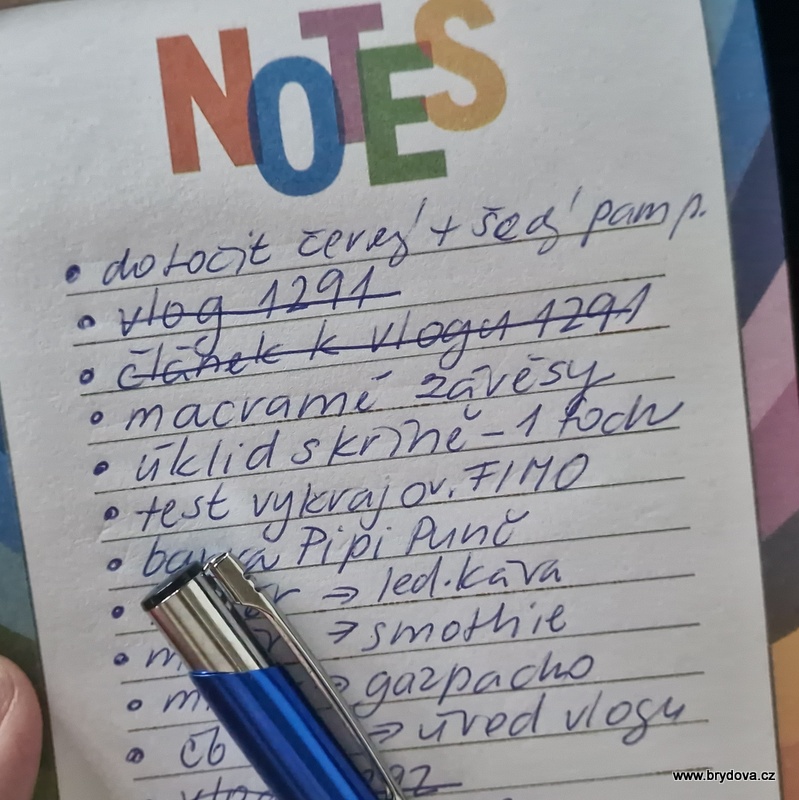 NOTES
• dotočit černý + šedý pamp.
• vlog 1291
• článek k vlogu 1291
• macramé závěsy
• úklid skříně - 1 foch
• test vykrajov. FIMO
• barva Pipi Punč
• → led. káva
• m → smothie
• m → gazpacho
• čb → úvod vlogu
vlog 1292
www.brydova.cz